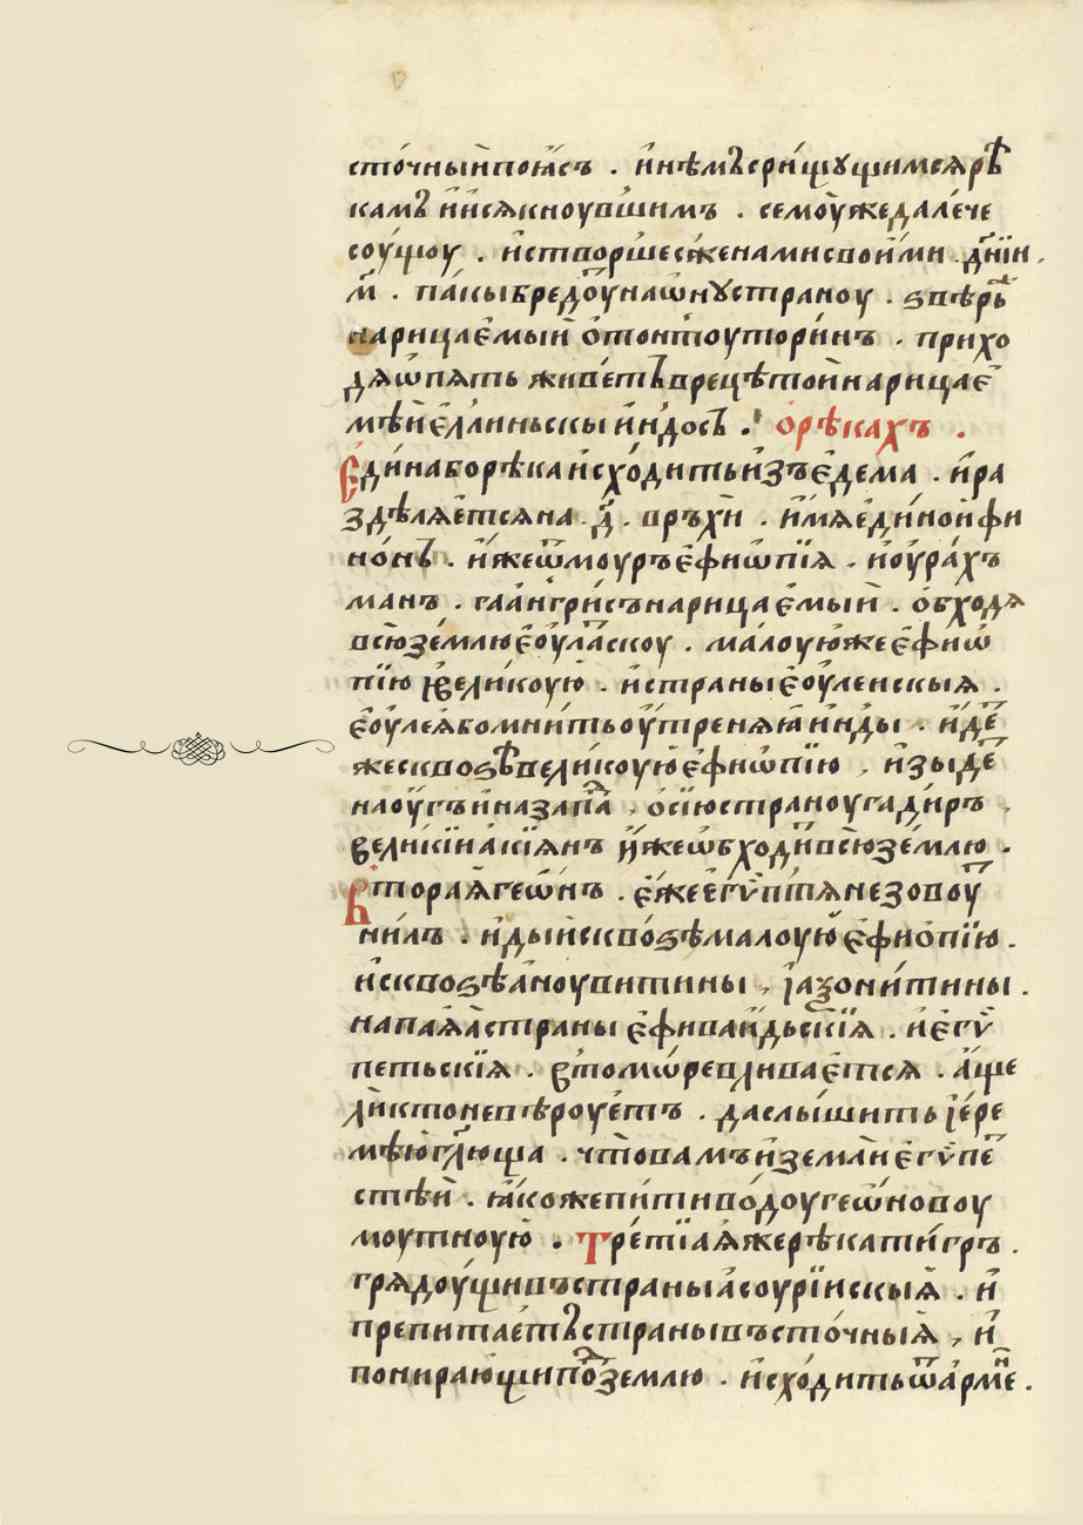 сто́чныйпоꙗ́съ . и҆нѣмъсри́щꙋщимсѧрѣ
камъ и҆и҆сѧ́кноувшимъ . семоу̀жедале́че
соу́щоу . и҆створшесженамисвои́ми . дн҃їи .
м҃ . па́кыбредоу̑наѡ҆нꙋстраноу . ѕвѣрьже
нарица́е҆мый о҆тонтоутюри́нъ . прихо
дѧѿпѧть живе́тьврецѣтойнарицае҆
мѣйе҆ллиньскы и҆́ндосъ . о҆рѣкахъ .
Е҆ди́наборѣкаи҆схо́дитьи҆зъе҆дема . и҆ра
здѣлѧе́тсѧна . д҃ . връхи̑ . и҆́мѧе҆ди́нойфи
но́нъ . и҆́жеѿмоуръе҆фиѡ҆пїѧ . и҆оу҆ра́хъ
манъ . гаа́нгри́съ нарица́е҆мый . о҆бходѧ
всю̀зе́млюе҆оу҆ла́скоу . ма́лоую҆жее҆фиѡ
пїю и҆вели́коую̀ . и҆страныє҆оу҆ленскыѧ .
є҆оу҆леѧ҆бомни́тьоу҆́тренѧѧ҆и҆́нды . и҆де́
жесквоѕѣвели́коую҆е҆фиѡ҆пїю , и҆зыде́
наю҆́гъи҆назапа̑ , о҆сїюстраноугади́ръ .
вели́кїйа҆кїѧ́нъ и҆́жеѡ҆бходи̑всю̀зе́млю .
Втораѧ҆геѡ́нъ . е҆́жеегѵ́птѧнезовоу̑
ни́лъ . и҆ды́йсквоѕѣмалоую҆е҆фио́пїю .
и҆сквоѕѣа҆ноувитины , і҆азони́тины .
напаѧ́ѧстраны е҆фиваи́дьскїѧ . и҆е҆гѵ
петьскїѧ . втомѡ́ревлива́е҆тсѧ . а҆́ще
ли̑ктоневѣроуе́тъ . даслы́шить і҆е́ре
мѣю҆гл҃юща . что̀вамъи҆земли̑е҆гѵ́пе
стѣй . ꙗ҆́коже пи́тиво́доугеѡ́новоу
моутноую̀ . Тре́тїаѧ҆жерѣкати́гръ .
грѧдоу́щивъстраныа҆соурі́искыѧ̀ . и҆
препита́е҆тъстранывъсто́чныѧ̀ , и҆
понираю́щипо̑землю . и҆схо́дитьѿа҆рмен̑ .